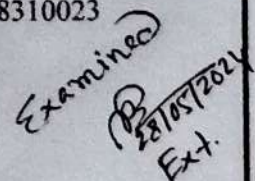 8310023
Examined
28/05/2024
Ext.